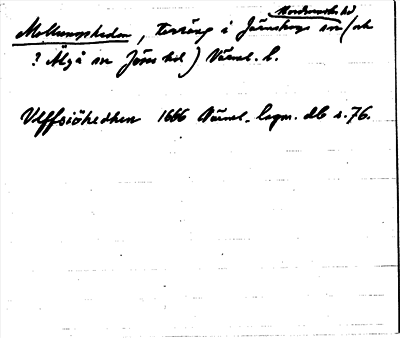 Nordmarks hd
Mellungsheden, terräng i Järnskogs sn (och
? Älgå sn Jösse hd) Värml. l.
Ulffsiöhedhen 1666 Värml. lagm. db s. 76.